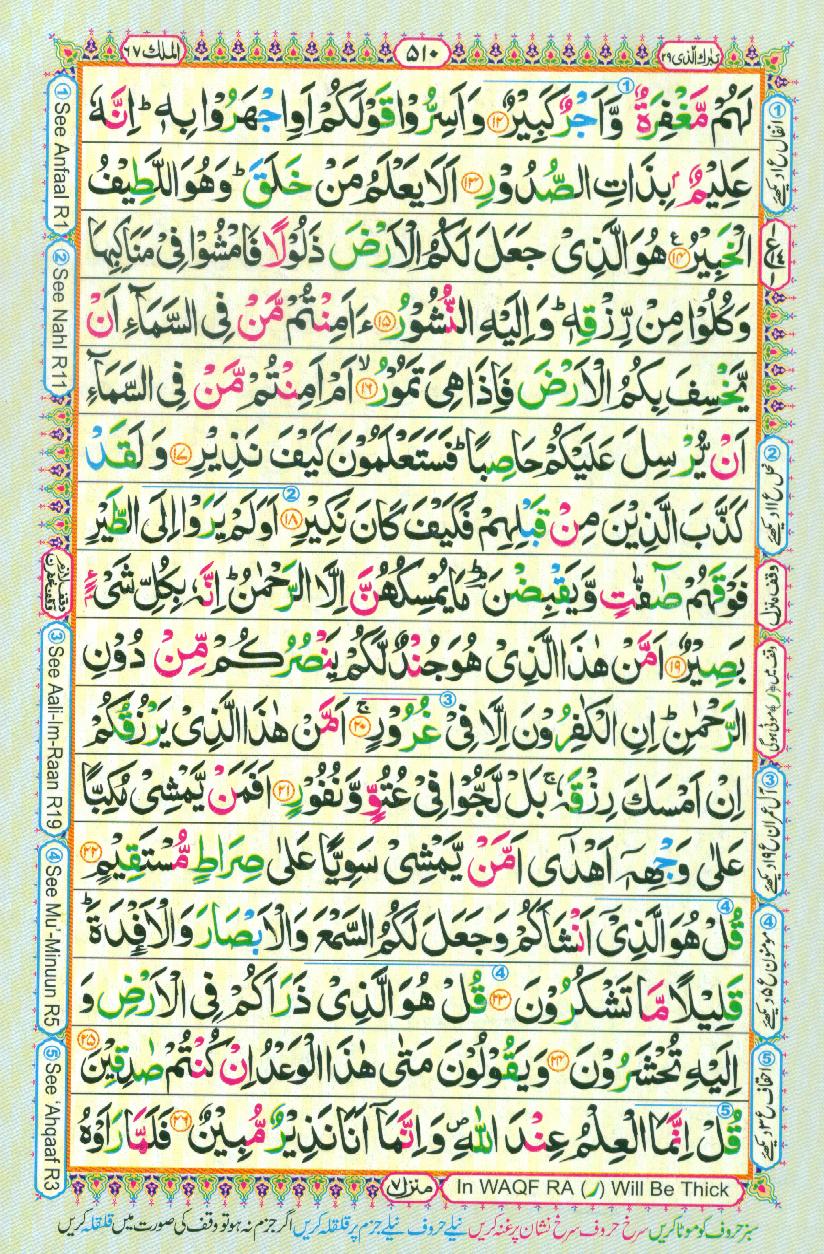 تبٰرک الذی ۲۹
۵۱۰
الملك ۶۷
لَهُمْ مَّغْفِرَةٌ وَّاَجْرٌ كَبِيْرٌ ۝۱۲ وَاَسِرُّوْا قَوْلَكُمْ اَوِ اجْهَرُوْا بِهٖ ؕ اِنَّهٗ
عَلِيْمٌۢ بِذَاتِ الصُّدُوْرِ ۝۱۳ اَلَا يَعْلَمُ مَنْ خَلَقَ ؕ وَهُوَ اللَّطِيْفُ
الْخَبِيْرُ ۝۱۴ هُوَ الَّذِىْ جَعَلَ لَكُمُ الْاَرْضَ ذَلُوْلًا فَامْشُوْا فِىْ مَنَاكِبِهَا
وَكُلُوْا مِنْ رِّزْقِهٖ ؕ وَاِلَيْهِ النُّشُوْرُ ۝۱۵ ءَاَمِنْتُمْ مَّنْ فِى السَّمَآءِ اَنْ
يَّخْسِفَ بِكُمُ الْاَرْضَ فَاِذَا هِىَ تَمُوْرُ ۙ۝۱۶ اَمْ اَمِنْتُمْ مَّنْ فِى السَّمَآءِ
اَنْ يُّرْسِلَ عَلَيْكُمْ حَاصِبًا ؕ فَسَتَعْلَمُوْنَ كَيْفَ نَذِيْرِ ۝۱۷ وَلَقَدْ
كَذَّبَ الَّذِيْنَ مِنْ قَبْلِهِمْ فَكَيْفَ كَانَ نَكِيْرِ ۝۱۸ اَوَلَمْ يَرَوْا اِلَى الطَّيْرِ
فَوْقَهُمْ صٰٓفّٰتٍ وَّيَقْبِضْنَ ؕ مَا يُمْسِكُهُنَّ اِلَّا الرَّحْمٰنُ ؕ اِنَّهٗ بِكُلِّ شَىْءٍۭ
بَصِيْرٌ ۝۱۹ اَمَّنْ هٰذَا الَّذِىْ هُوَ جُنْدٌ لَّكُمْ يَنْصُرُكُمْ مِّنْ دُوْنِ
الرَّحْمٰنِ ؕ اِنِ الْكٰفِرُوْنَ اِلَّا فِىْ غُرُوْرٍ ۚ۝۲۰ اَمَّنْ هٰذَا الَّذِىْ يَرْزُقُكُمْ
اِنْ اَمْسَكَ رِزْقَهٗ ۚ بَلْ لَّجُّوْا فِىْ عُتُوٍّ وَّنُفُوْرٍ ۝۲۱ اَفَمَنْ يَّمْشِىْ مُكِبًّا
عَلٰى وَجْهِهٖۤ اَهْدٰٓى اَمَّنْ يَّمْشِىْ سَوِيًّا عَلٰى صِرَاطٍ مُّسْتَقِيْمٍ ۝۲۲
قُلْ هُوَ الَّذِىْۤ اَنْشَاَكُمْ وَجَعَلَ لَكُمُ السَّمْعَ وَالْاَبْصَارَ وَالْاَفْـِٕدَةَ ؕ
قَلِيْلًا مَّا تَشْكُرُوْنَ ۝۲۳ قُلْ هُوَ الَّذِىْ ذَرَاَكُمْ فِى الْاَرْضِ وَ
اِلَيْهِ تُحْشَرُوْنَ ۝۲۴ وَيَقُوْلُوْنَ مَتٰى هٰذَا الْوَعْدُ اِنْ كُنْتُمْ صٰدِقِيْنَ ۝۲۵
قُلْ اِنَّمَا الْعِلْمُ عِنْدَ اللّٰهِ ۪ وَاِنَّمَاۤ اَنَا نَذِيْرٌ مُّبِيْنٌ ۝۲۶ فَلَمَّا رَاَوْهُ
① انفال ع ۱ دیکھئے
② نحل ع ۱۱ دیکھئے
وقف منزل
وقف میں (ر) موٹی ہوگی
③ آل عمران ع ۱۹ دیکھئے
④ مومنون ع ۵ دیکھئے
⑤ احقاف ع ۳ دیکھئے
① See Anfaal R1
② See Nahl R11
③ See Aali-Im-Raan R19
④ See Mu'-Minuun R5
⑤ See 'Ahqaaf R3
منزل ۷
In WAQF RA (ر) Will Be Thick
سبز حروف کو موٹا کریں سرخ حروف سرخ نشان پر غنہ کریں نیلے حروف نیلے جزم پر قلقلہ کریں اگر جزم نہ ہو تو وقف کی صورت میں قلقلہ کریں